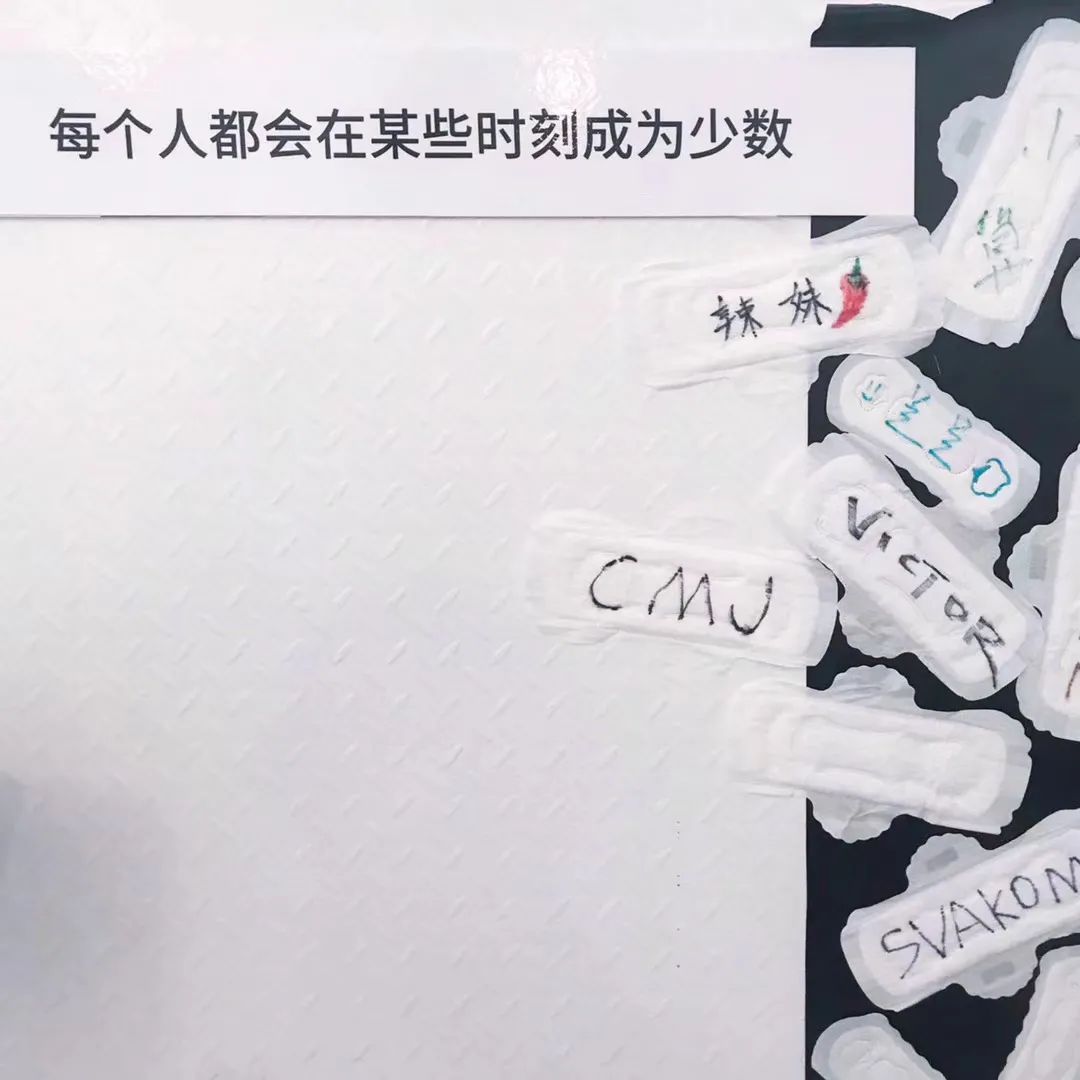 每个人都会在某些时刻成为少数
辣妹
CMJ
VICTOR
SVAKOM